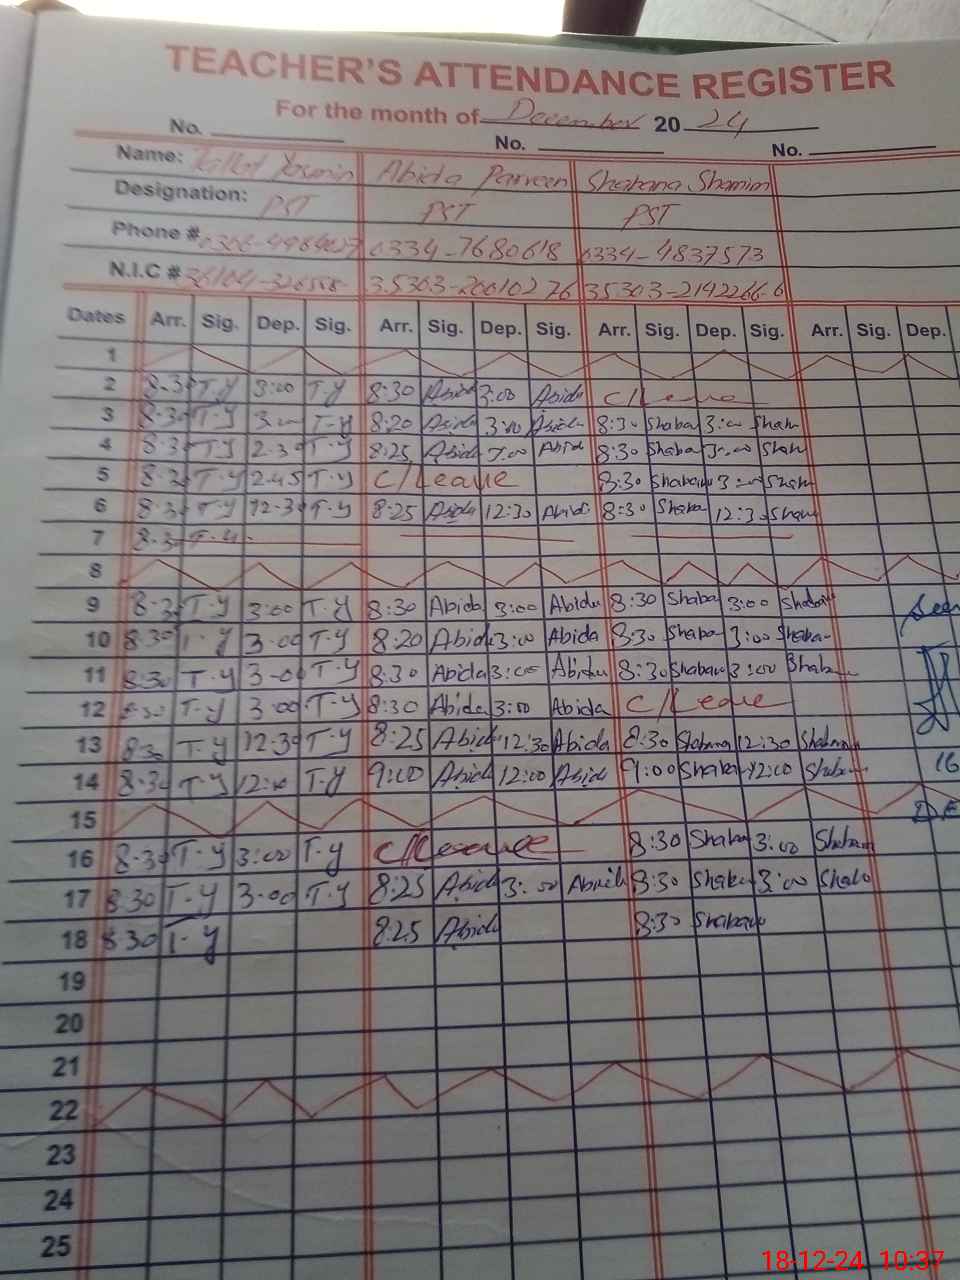 TEACHER'S ATTENDANCE REGISTER
For the month of December 20 24
No. No. No.
Name: Yasmin Abida Parveen Shabana Shamim
Designation: PST PST PST
Phone # 0334-7680618 0334-4837573
N.I.C # 35303-2142266-6
Dates Arr. Sig. Dep. Sig. Arr. Sig. Dep. Sig. Arr. Sig. Dep. Sig. Arr. Sig. Dep.
1
2 8-30 T-Y 3:00 T-Y 8:30 Abida 3:00 Abida C/Leave
3 8-30 T-Y 3:00 T-Y 8:20 Abida 3:00 Abida 8:30 Shaba 3:00 Shaba
4 8-30 T-Y 2-30 T-Y 8:25 Abida 3:00 Abid 8:30 Shaba 3:00 Shab
5 8-30 T-Y 2-45 T-Y C/Leave 8:30 Shabana 3:00 Shab
6 8-30 T-Y 12-30 T-Y 8:25 Abida 12:30 Abida 8:30 Shaba 12:30 Shaba
7 8-30 T-Y
8
9 8-30 T-Y 3:00 T-Y 8:30 Abida 3:00 Abida 8:30 Shaba 3:00 Shabana
10 8:30 T-Y 3-00 T-Y 8:20 Abida 3:00 Abida 8:30 Shaba 3:00 Shaba
11 8:30 T-Y 3-00 T-Y 8:30 Abida 3:00 Abida 8:30 Shabana 3:00 Shaba
12 8:30 T-Y 3:00 T-Y 8:30 Abida 3:00 Abida C/Leave
13 8:30 T-Y 12:30 T-Y 8:25 Abida 12:30 Abida 8:30 Shabana 12:30 Shabana
14 8-30 T-Y 12:00 T-Y 9:00 Abida 12:00 Abida 9:00 Shaba 12:00 Shaba 16
15
16 8-30 T-Y 3:00 T-Y C/Leave 8:30 Shaba 3:00 Shabana
17 8:30 T-Y 3-00 T-Y 8:25 Abida 3:00 Abida 8:30 Shaba 3:00 Shaba
18 8:30 T-Y 8:25 Abida 8:30 Shabana
19
20
21
22
23
24
25
18-12-24 10:37